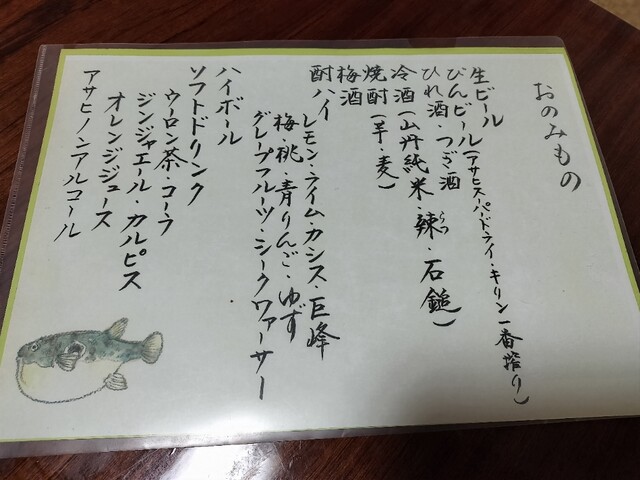 おのみもの
生ビール
びんビール(アサヒスーパードライ・キリン一番搾り)
ひれ酒・つぎ酒
冷酒(山丹純米・辣・石鎚)
らつ
焼酎(芋・麦)
梅酒
酎ハイ
レモン・ライム・カシス・巨峰
梅・桃・青りんご・ゆず
グレープフルーツ・シークワァーサー
ハイボール
ソフトドリンク
ウーロン茶・コーラ
ジンジャエール・カルピス
オレンジジュース
アサヒノンアルコール